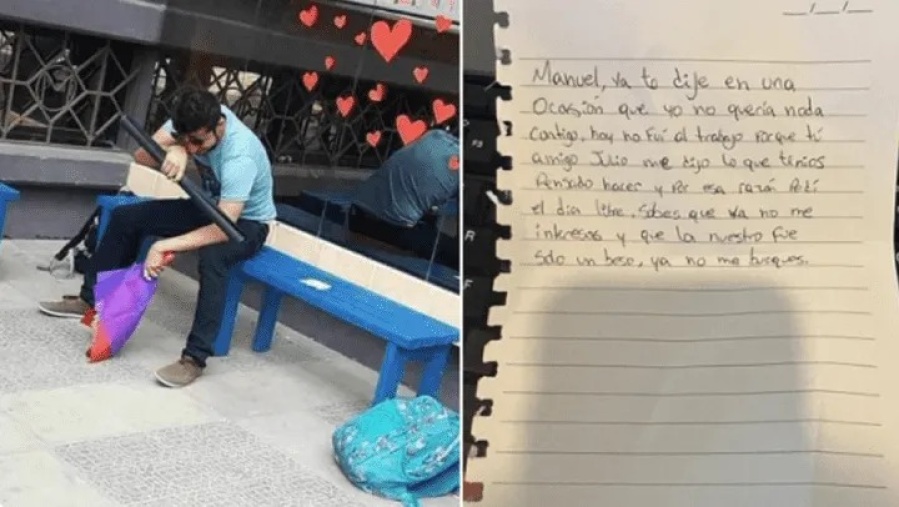 __/__/__
Manuel, ya te dije en una
Ocasión que yo no quería nada
Contigo, hoy no fui al trabajo porque tú
amigo Julio me dijo lo que tenías
Pensado hacer y por esa razón Pedí
el día libre, sabes que ya no me
interesas y que lo nuestro fue
Solo un beso, ya no me busques.